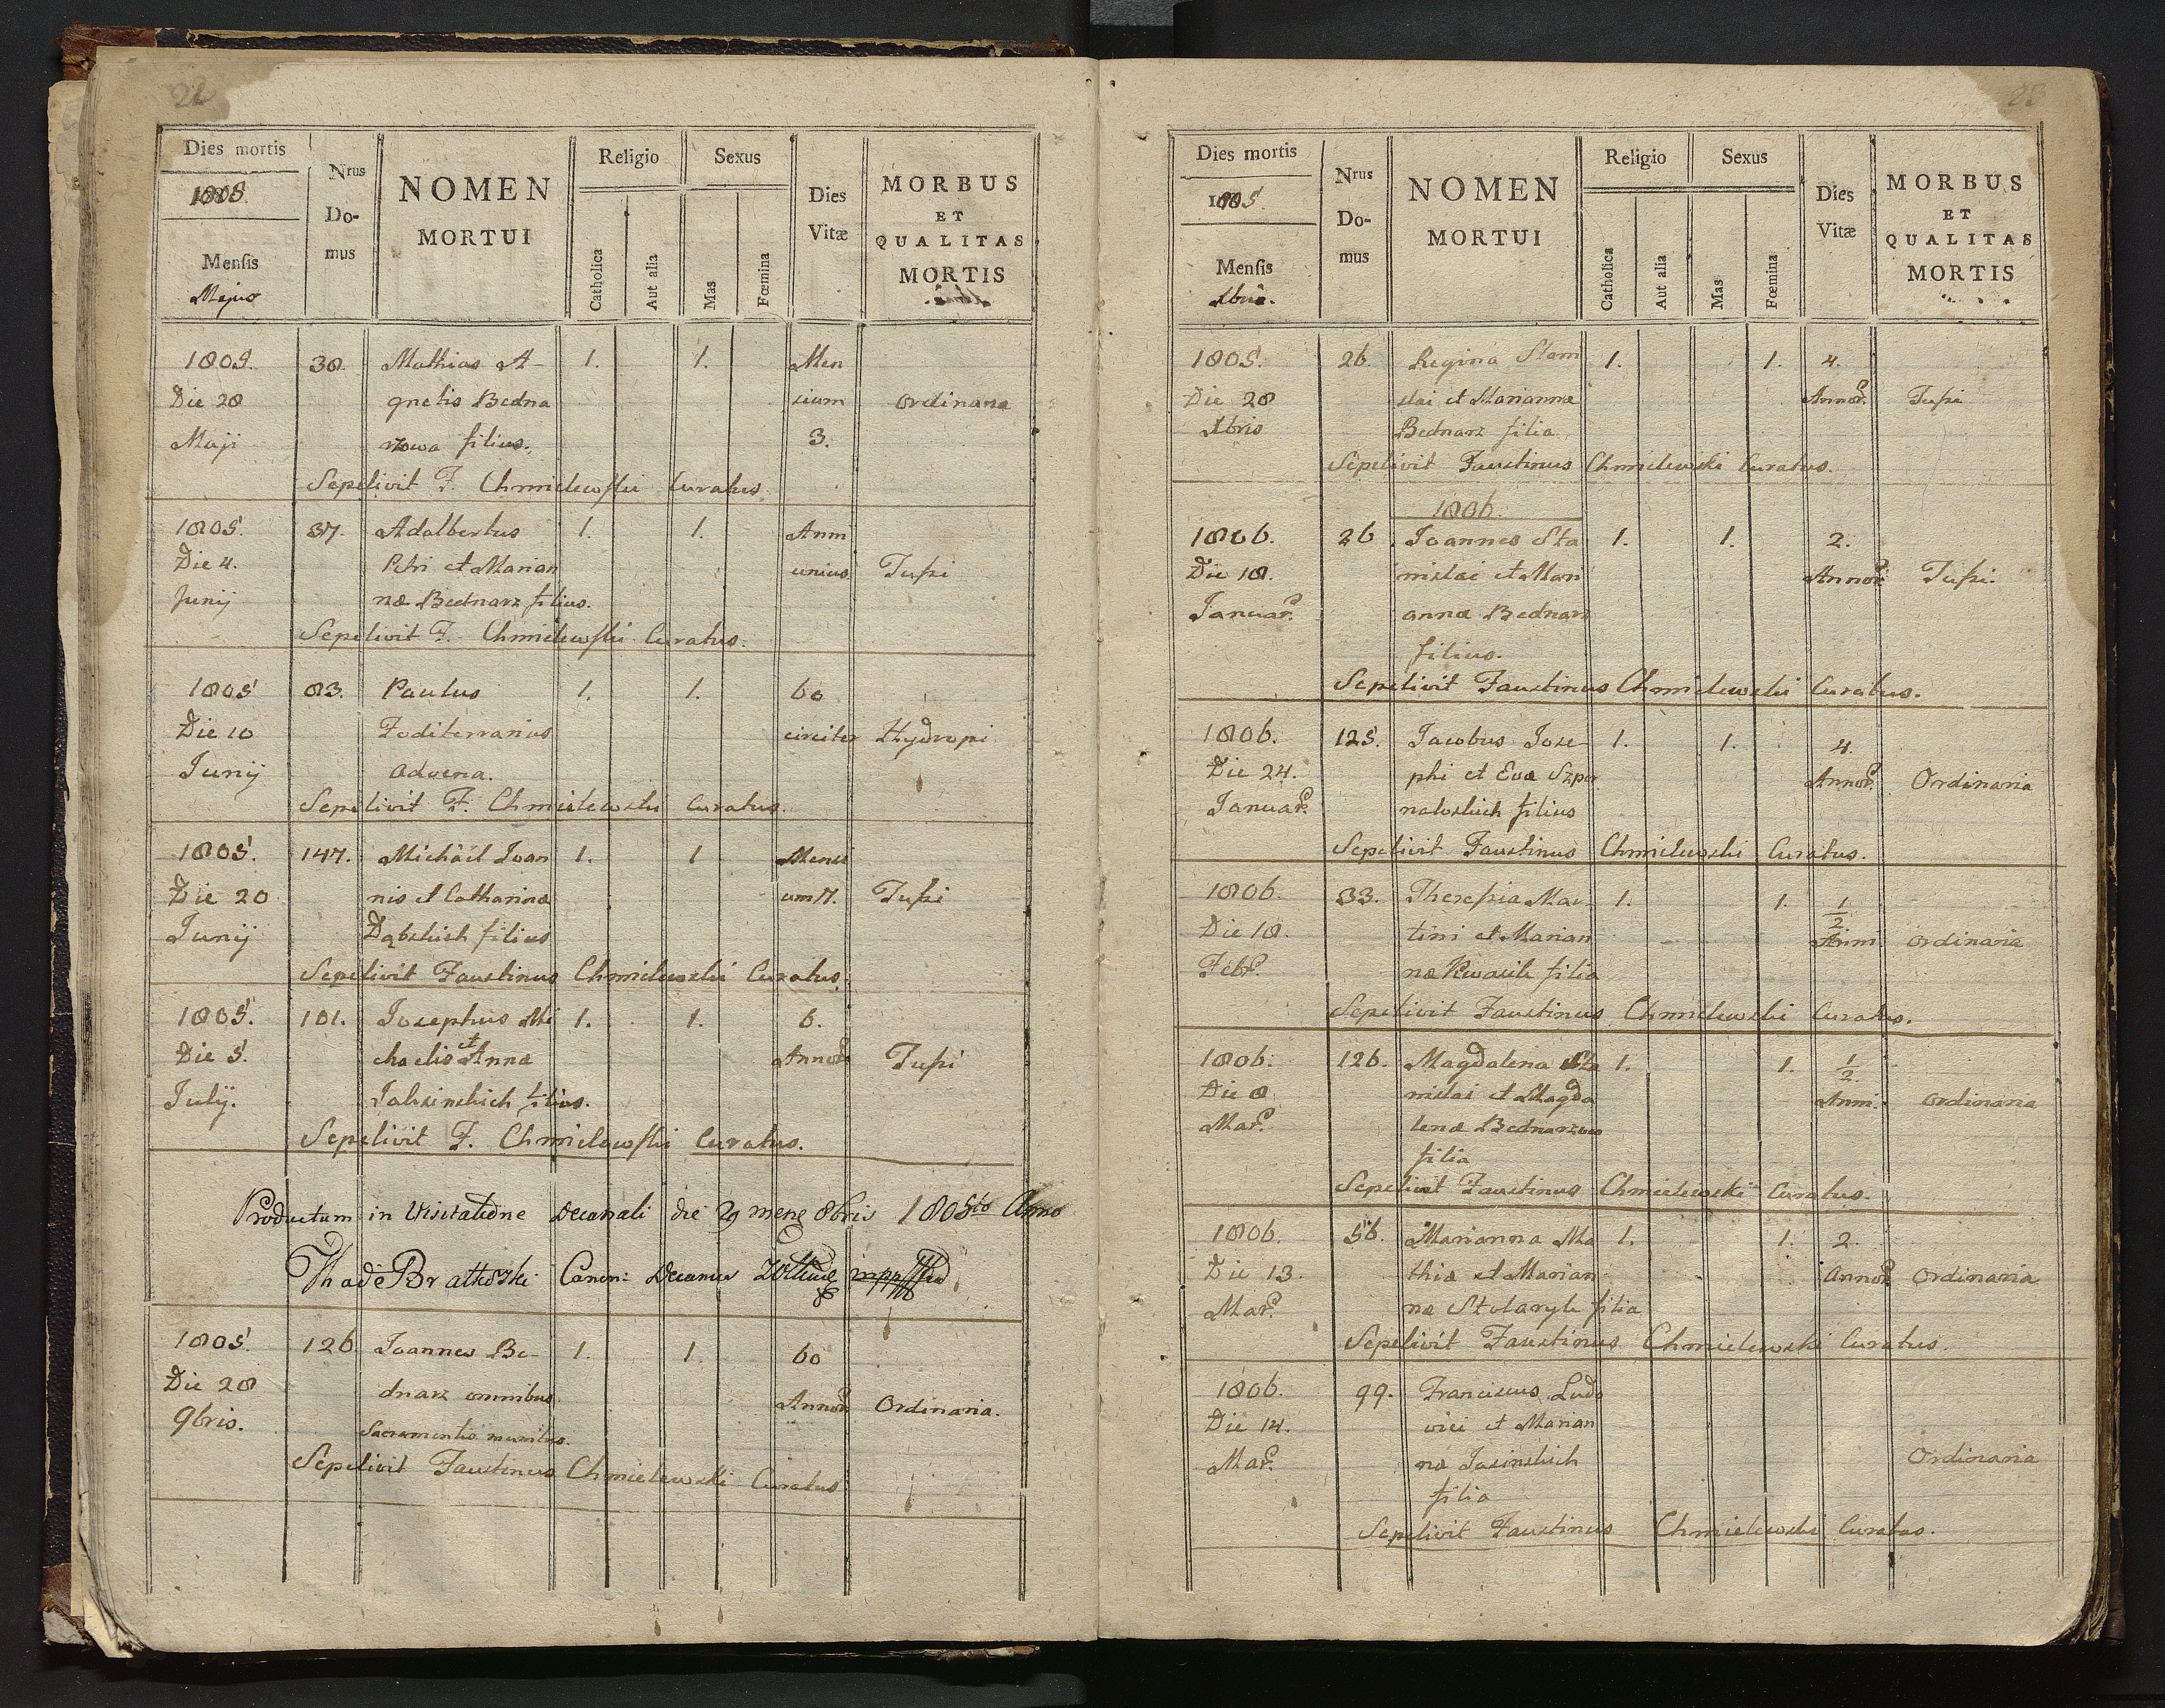 22
Dies mortis
1805.
Mensis
Majus
Nrus
Do-
mus
NOMEN
MORTUI
Religio
Catholica
Aut alia
Sexus
Mas
Fœmina
Dies
Vitæ
MORBUS
ET
QUALITAS
MORTIS
1805. 38. Mathias A- 1. 1. Men
Die 28 gnetis Bedna sium ordinaria
Maji rzowa filius. 3.
Sepelivit F. Chmielewski Curatus
1805. 37. Adalbertus 1. 1. Anni
Die 4. Petri et Marian unius Tussi
Junij næ Bednarz filius.
Sepelivit F. Chmielewski Curatus.
1805 83. Paulus 1. 1. 60
Die 10 Foditerrarius circiter Hydropi
Junij advena.
Sepelivit F. Chmielewski Curatus.
1805. 147. Michäel Joan 1. 1 Mensi
Die 20 nis et Catharinæ um 7. Tussi
Junij Dąbskich filius
Sepelivit Faustinus Chmielewski Curatus.
1805. 101. Josephus Mi 1. 1. 6.
Die 5. chaelis et Annæ Annor Tussi
Julij. filius.
Sepelivit F. Chmielewski Curatus.
Productum in Visitatione Decanali die 29 mens 8bris 1805to Anno
Thade Bratkoski Canon: Decanus
1805. 126 Joannes Be- 1. 1. 60
Die 28 dnarz omnibus Annor Ordinaria.
9bris. Sacramentis munitus.
Sepelivit Faustinus Chmielewski Curatus
23
Dies mortis
1805.
Mensis
Xbris.
Nrus
Do-
mus
NOMEN
MORTUI
Religio
Catholica
Aut alia
Sexus
Mas
Fœmina
Dies
Vitæ
MORBUS
ET
QUALITAS
MORTIS
1805. 26. Regina Stani 1. 1. 4.
Die 28 slai et Mariannæ Annor. Tussi
Xbris Bednarz filia
Sepelivit Faustinus Chmielewski Curatus.
1806.
1806. 26. Joannes Sta 1. 1. 2.
Die 18. nislai et Mari Annor. Tussi.
Januar. annæ Bednarz
filius.
Sepelivit Faustinus Chmielewski Curatus.
1806. 125. Jacobus Jose- 1. 1. 4.
Die 24. phi et Evæ Szper Annor. Ordinaria
Januar. naloskich filius
Sepelivit Faustinus Chmielewski Curatus.
1806. 33. Theresia Mar- 1. 1. 1/2
Die 18. tini et Marian Anni ordinaria
Febr. næ Kwasik filia
Sepelivit Faustinus Chmielewski Curatus.
1806. 126. Magdalena Sta 1. 1. 1/2.
Die 8 nislai et Magda Anni. ordinaria
Mar. lenæ Bednarzow
filia
Sepelivit Faustinus Chmielewski Curatus.
1806. 56. Marianna Ma 1. 1. 2.
Die 13. thiæ et Marian Annor Ordinaria
Mar. næ Stolaryk filia
Sepelivit Faustinus Chmielewski Curatus.
1806. 99. Franciscus Ludo
Die 14. vici et Marian
Mar. næ Jasinskich Ordinaria
filia
Sepelivit Faustinus Chmielewski Curatus.